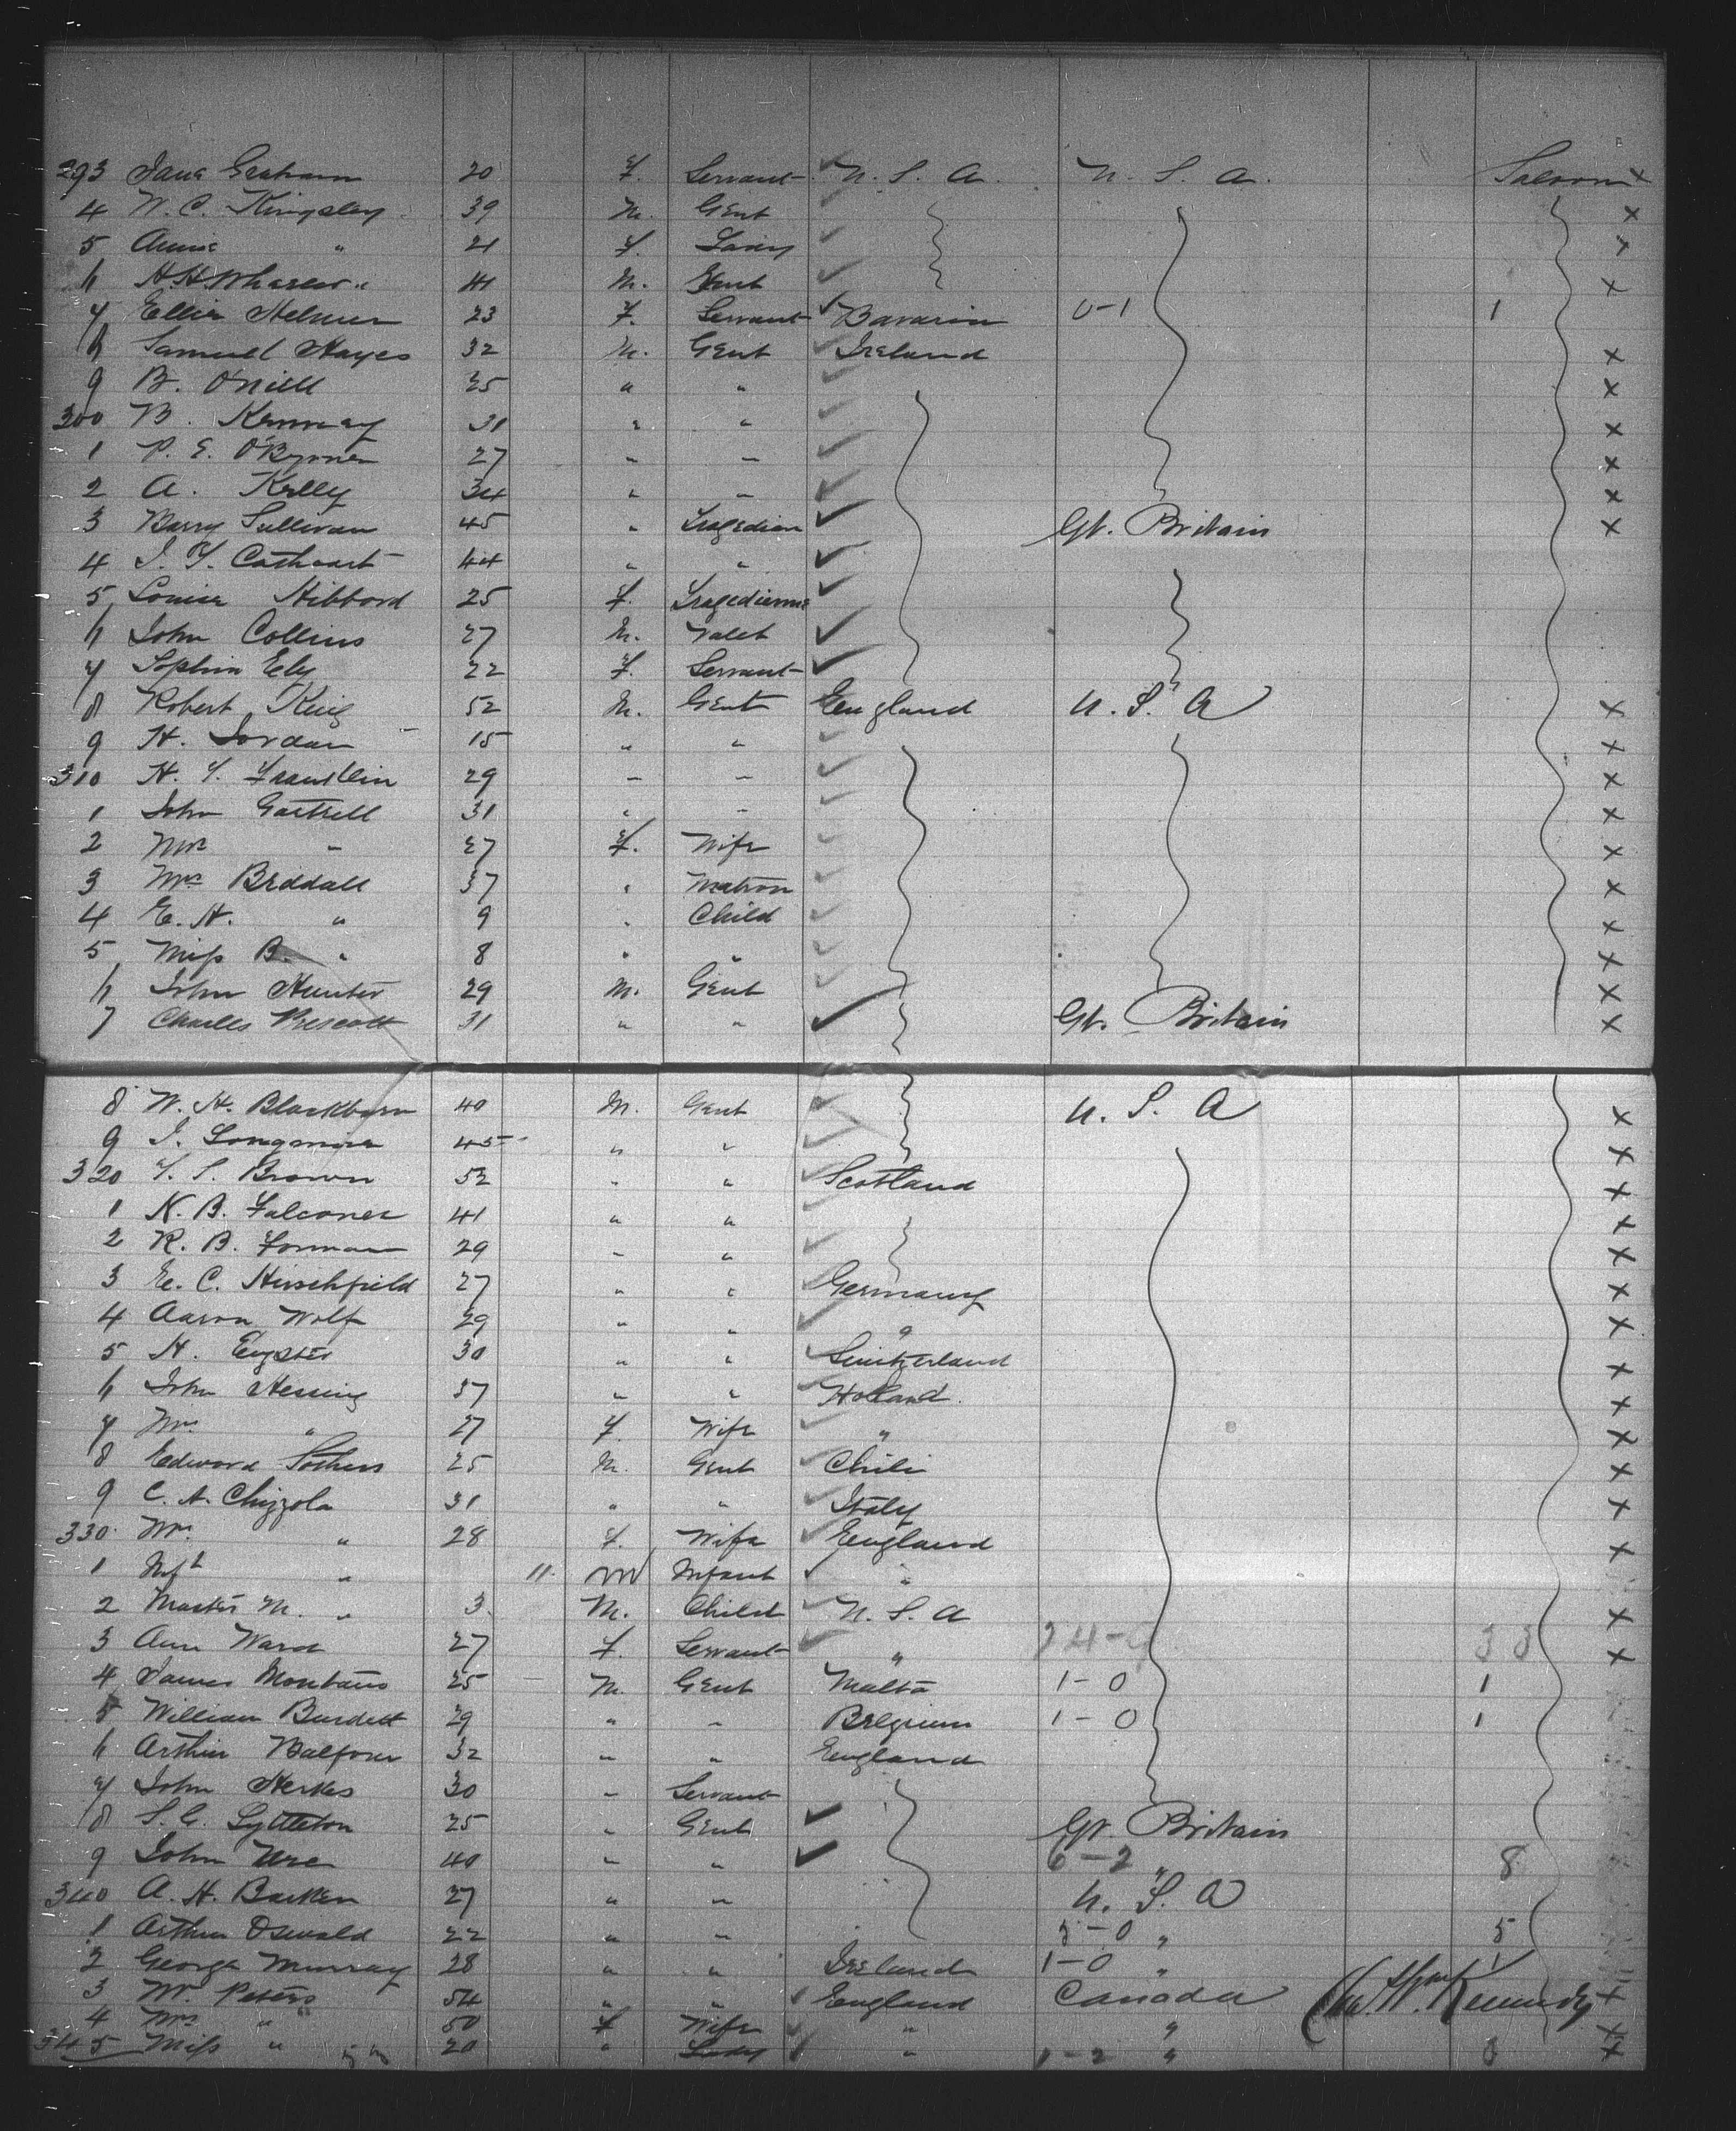 293 Jane Graham 20 F. Servant U. S. A. U. S. A. Saloon x
4 W. C. Kingsley 39 M. Gent x
5 Annie " 21 F. Lady x
6 H. H. 41 M. Gent x
7 Ellis Helmer 23 F. Servant Bavaria 0-1 1
8 Samuel Hayes 32 M. Gent Ireland x
9 B. O'Niell 25 " " x
300 B. 31 " " x
1 P. E. O'Byrne 27 " " x
2 A. Kelly 34 " " x
3 Barry Sullivan 45 " Tragedian Gt. Britain x
4 J. F. Cathcart 44 " "
5 Louise Hibbord 25 F. Tragedienne
6 John Collins 27 M. Valet
7 Sophia Ely 22 F. Servant
8 Robert King 52 M. Gent England U. S. A x
9 H. Jordan 15 " " x
310 H. F. Franklin 29 " " x
1 John Gartrell 31 " " x
2 Mrs " 27 F. Wife x
3 Mrs Beddall 37 " Matron x
4 E. H. " 9 " Child x
5 Miss B. " 8 " " x
6 John Hunter 29 M. Gent x
7 Charles Prescott 31 " " Gt. Britain x
8 W. H. Blackburn 40 M. Gent U. S. A x
9 J. Longmire 45 " " x
320 F. S. Brown 52 " " Scotland x
1 K. B. Falconer 41 " " x
2 R. B. Forman 29 " " x
3 E. C. Hirschfield 27 " " Germany x
4 Aaron Wolf 29 " " " x
5 H. Eugster 30 " " Switzerland x
6 John Hessing 37 " " Holland. x
7 Mrs " 27 F. Wife " x
8 Edward Sothers 25 M. Gent Chili x
9 C. A. Chizzola 31 " " Italy x
330 Mrs " 28 F. Wife England x
1 Inft " 11 M Infant "
2 Master M. " 3 M. Child U. S. A x
3 Ann Ward 27 F. Servant " 24-9 33 x
4 James Montano 25 M. Gent Malta 1-0 1
5 William Burdett 29 " " Belgium 1-0 1
6 Arthur Balfour 32 " " England
7 John Herkes 30 " Servant
8 S. G. Lyttleton 25 " Gent Gt. Britain
9 John Ure 40 " " 6-2 " 8
340 A. H. 27 " " U. S. A
1 Arthur Oswald 22 " " 5-0 " 5
2 George Murray 28 " " Ireland 1-0 " 1
3 W. Peters 54 " " England Canada Kennedy x
4 Mrs " 50 F Wife " " x
345 Miss " 20 " Lady " 1-2 " 3 x